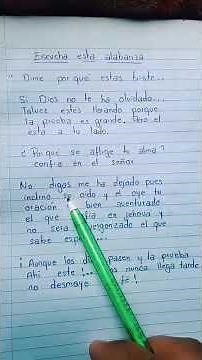 Escucha esta alabanza
" Dime por qué estas triste..
Si Dios no te ha olvidado...
Talvez estes llorando porque
la prueba es grande. Pero el
esta a tu lado.
¿ Por que se aflige tu alma?
confia en el señor
No digas me ha dejado pues
inclino su oido y el oye tu
oración bien aventurado
el que confia en jehova y
no sera avergonzado el que
sabe
¡ Aunque los dias pasen y la prueba
Ahi este !.. nunca llega tarde
no desmaye fe !